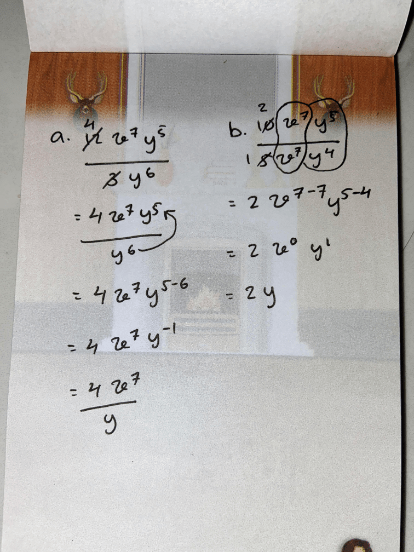 a. 4 12 x⁷ y⁵
3 y⁶
= 4 x⁷ y⁵
y⁶
= 4 x⁷ y⁵⁻⁶
= 4 x⁷ y⁻¹
= 4 x⁷
y
b. 2 10 x⁷ y⁵
1 5 x⁷ y⁴
= 2 x⁷⁻⁷ y⁵⁻⁴
= 2 x⁰ y¹
= 2 y